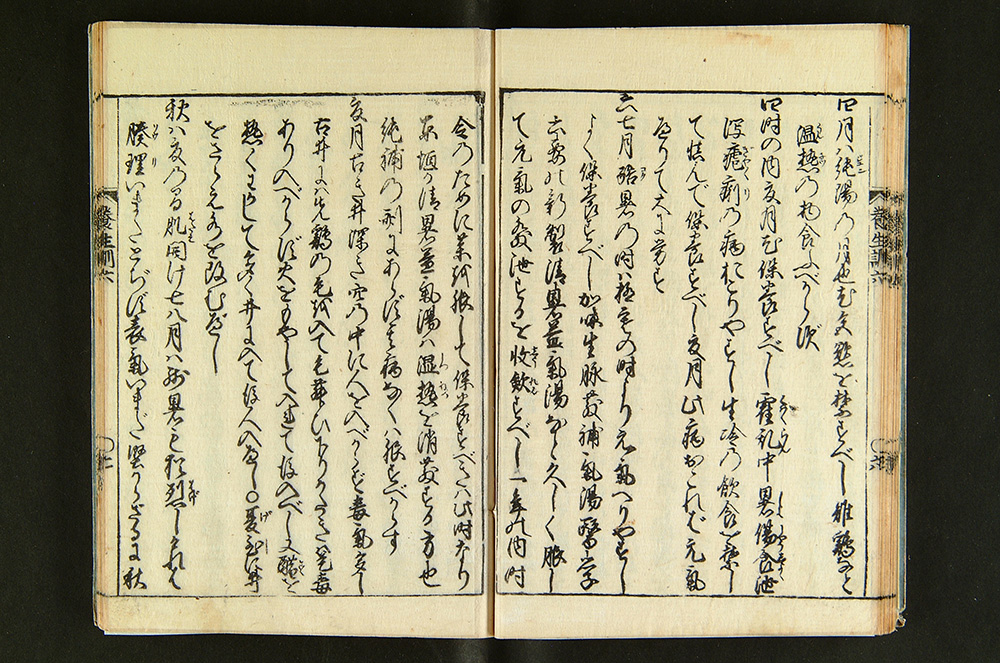 四月ハ純陽の月也尤色慾を禁ずべし雉鶏など
温熱の物食ふべからず
四時の内夏月尤保養すべし霍乱中暑傷食泄
瀉瘧痢の病おこりやすし生冷の飲食を禁じ
て慎んで保養すべし夏月此病おこれバ元氣
へりて大に労す
六七月酷暑の時ハ極寒の時より元氣へりやすし
よく保養すべし加味生脉散補氣湯醫学
六要の新製清暑益氣湯など久しく服し
て元氣の発泄するを收斂すべし一年の内時
令のために薬を服して保養すべきハ此時なり
東垣が清暑益氣湯ハ湿熱を消散する方也
純補の剤にあらず其病なくバ服すべからず
夏月古き井深き穴の中に人を入べからず毒氣多し
古井にハ先鶏の毛を入て毛舞ひ下りがたきハ是毒
あり入べからず火をもやして入れて後入べし又醋を
熱くわかして多く井に入て後人入べし〇夏至に井
をさらえ水を改むべし
秋ハ夏の間肌開け七八月ハ残暑も猶烈しけれバ
腠理いまだとぢず表氣いまだ堅からざるに秋
養生訓六
養生訓六